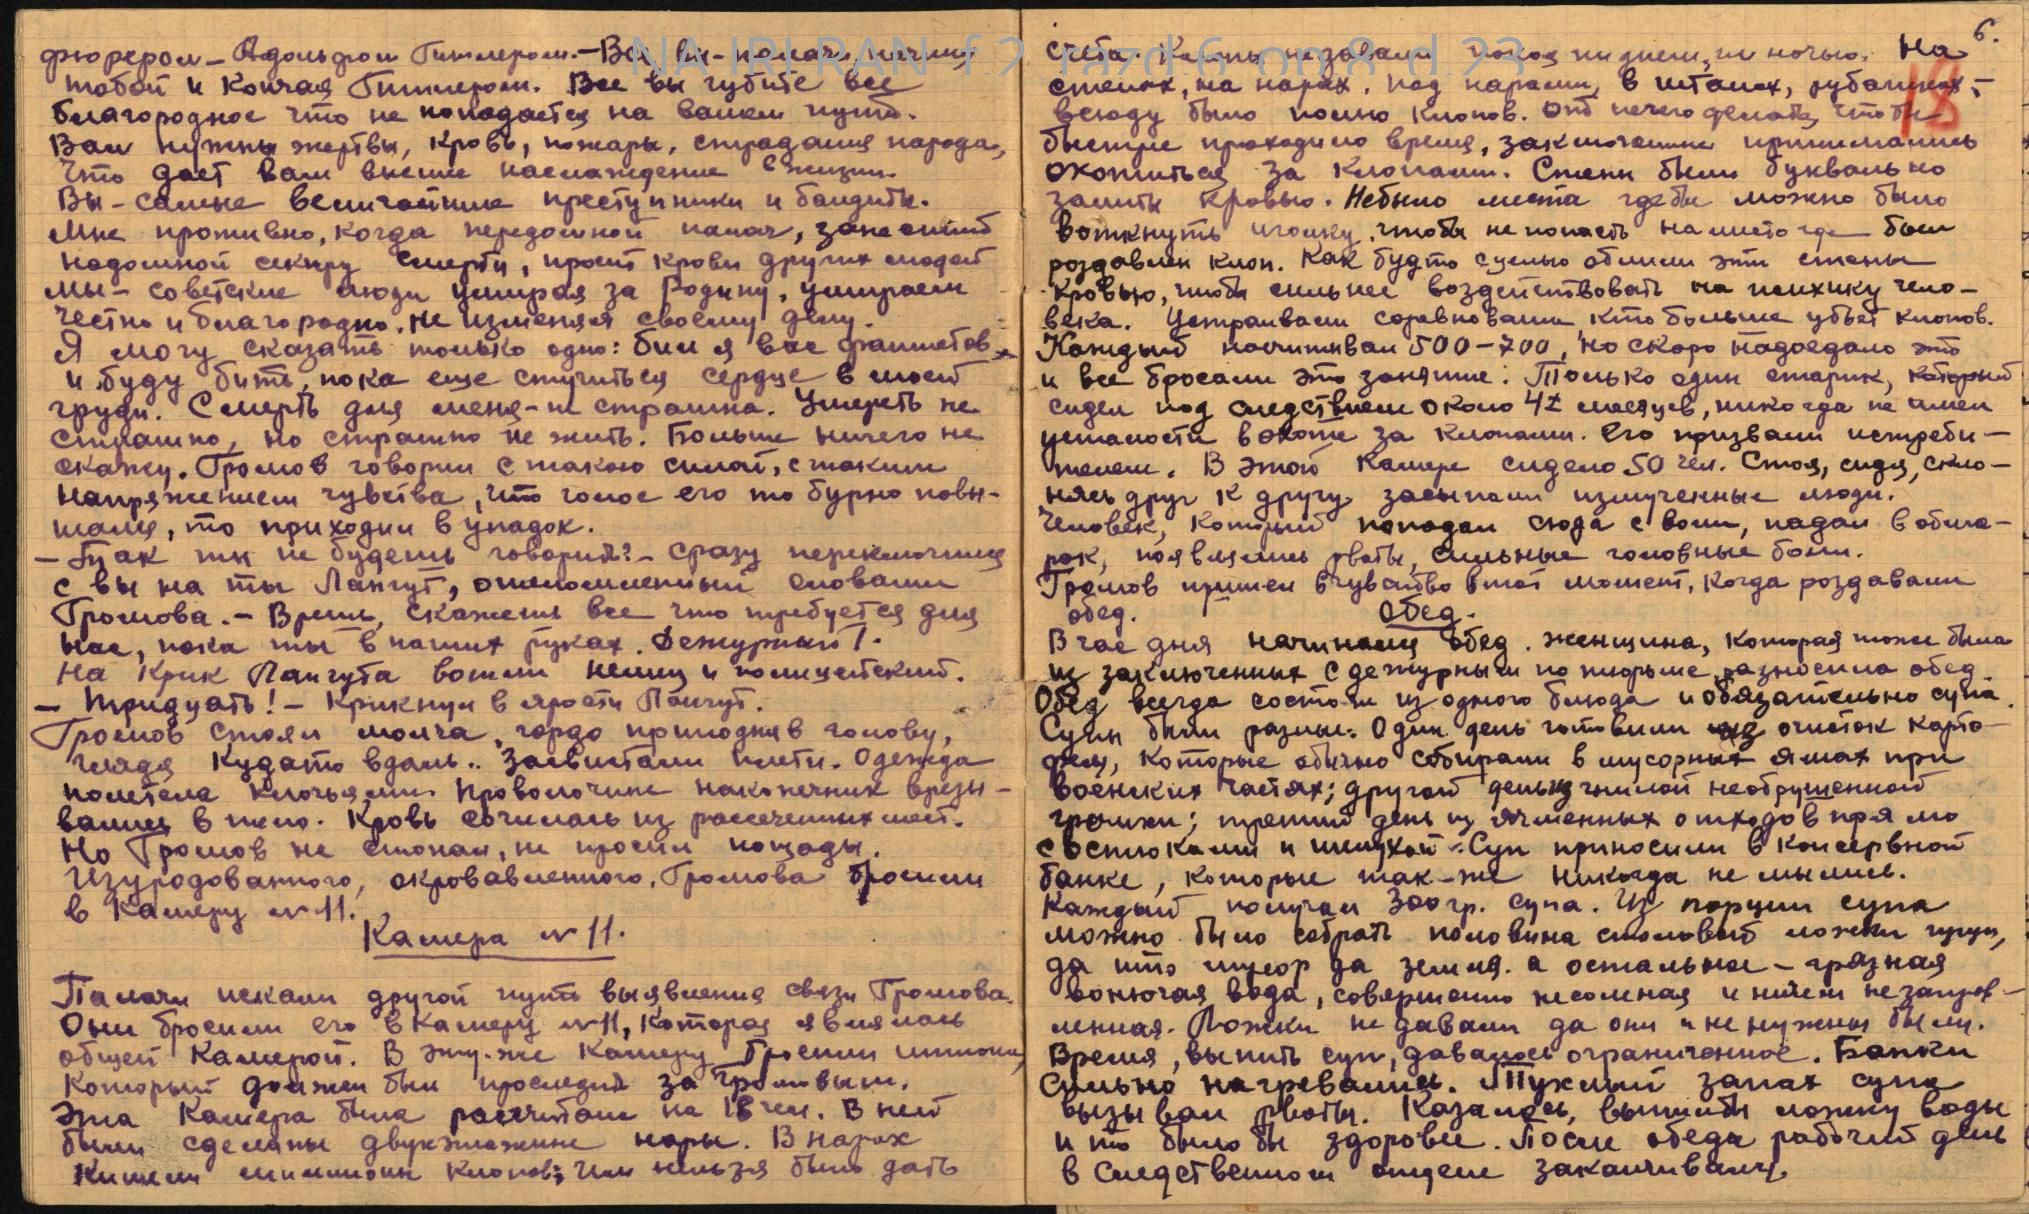 фюрером – Адольфом Гитлером. – Все вы – палачи, начиная
тобой и кончая Гитлером. Все вы губите все
благородное что не попадается на вашем пути.
Вам нужны жертвы, кровь, пожары, страдания народа,
что дает вам высшее наслаждение в жизни.
Вы – самые величайшие преступники и бандиты.
Мне противно, когда передомной палач, занесший
надомной секиру смерти, просит крови других людей
Мы – советские люди умирая за Родину, умираем
честно и благородно, не изменяя своему делу.
Я могу сказать только одно: бил я вас фашистов
и буду бить, пока еще стучиться сердце в моей
груди. Смерть для меня – не страшна. Умереть не
страшно, но страшно не жить. Больше ничего не
скажу. Громов говорил с такою силой, с таким
напряжением чувства, что голос его то бурно повы-
шался, то приходил в упадок.
– Так ты не будешь говорить? – сразу переключился
с вы на ты Лангут, ошеломленный словами
Громова. – Врешь, скажешь все что требуется для
нас, пока ты в наших руках. Дежурный!
На крик Лангута вошли немец и полицейский.
– Тридцать! – крикнул в ярости Лангут.
Громов стоял молча, гордо приподняв голову,
глядя кудато вдаль.. Засвистали плети. Одежда
полетела клочьями. Проволочные наконечники врезы-
вались в тело. Кровь сочилась из рассеченных мест.
Но Громов не стонал, не просил пощады.
Изуродованного, окровавленного, Громова бросили
в камеру № 11.
Камера № 11.
Палачи искали другой путь выявления связи Громова.
Они бросили его в камеру № 11, которая являлась
общей камерой. В эту-же камеру бросили шпиона,
который должен был проследить за Громовым.
Эта камера была рассчитана на 18 чел. В ней
были сделаны двухэтажные нары. В нарах
кишели миллионы клопов; им нельзя было дать
6.
18
счета. Клопы не давали покоя ни днем, ни ночью. На
стенах, на нарах, под нарами, в штанах, рубашках, –
всюду было полно клопов. От нечего делать, чтобы
быстрее проходило время, заключенные принимались
охотиться за клопами. Стены были буквально
залиты кровью. Небыло места гдебы можно было
воткнуть иголку, чтобы не попасть на место где был
роздавлен клоп. Как будто с целью облили эти стены
кровью, чтобы сильнее воздействовать на психику чело-
века. Устраивали соревнования, кто больше убьет клопов.
Каждый насчитывал 500–700, но скоро надоедало это
и все бросали это занятие. Только один старик, который
сидел под следствием около 4х месяцев, никогда не имел
усталости в охоте за клопами. Его призвали истреби-
телем. В этой камере сидело 50 чел. Стоя, сидя, скло-
нясь друг к другу засыпали измученные люди.
Человек, который попадал сюда с воли, падал в обмо-
рок, появлялись рвоты, сильные головные боли.
Громов пришел в чувство в тот момент, когда роздавали
обед.
Обед.
В час дня начинался обед. Женщина, которая тоже была
из заключенных с дежурным по тюрьме разносила обед
Обед всегда состоял из одного блюда и обязательно супа.
Супы были разные. Один день готовили из очисток карто-
феля, которые обычно собирали в мусорных ямах при
воинских частях; другой день из гнилой необрушенной
гречихи; третий день из ячменных отходов прямо
с остюками и шелухой. Суп приносили в консервной
банке, которые так-же никогда не мылись.
Каждый получал 300 гр. супа. Из порции супа
можно было собрать половина столовой ложки гущи,
да што мусор да земля. а остальное – грязная
вонючая вода, совершенно несоленая и ничем незаправ-
ленная. Ложки не давали да они и не нужны были.
Время, выпить суп, давалось ограниченное. Банки
сильно нагревались. Тухлый запах супа
вызывал рвоты. Казалось, выпилбы ложку воды
и то было бы здоровее. После обеда рабочий день
в следственном отделе заканчивался.
NA IRI RAN f.2 razd.6 op.8 d.23